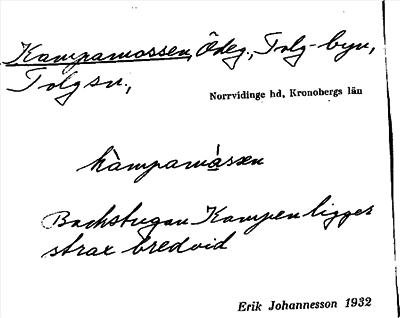 Kampamossen, Ödeg., Tolg-byn,
Tolg sn,
Norrvidinge hd, Kronobergs län
kàmpamássen
Backstugan Kampen ligger
strax bredvid
Erik Johannesson 1932